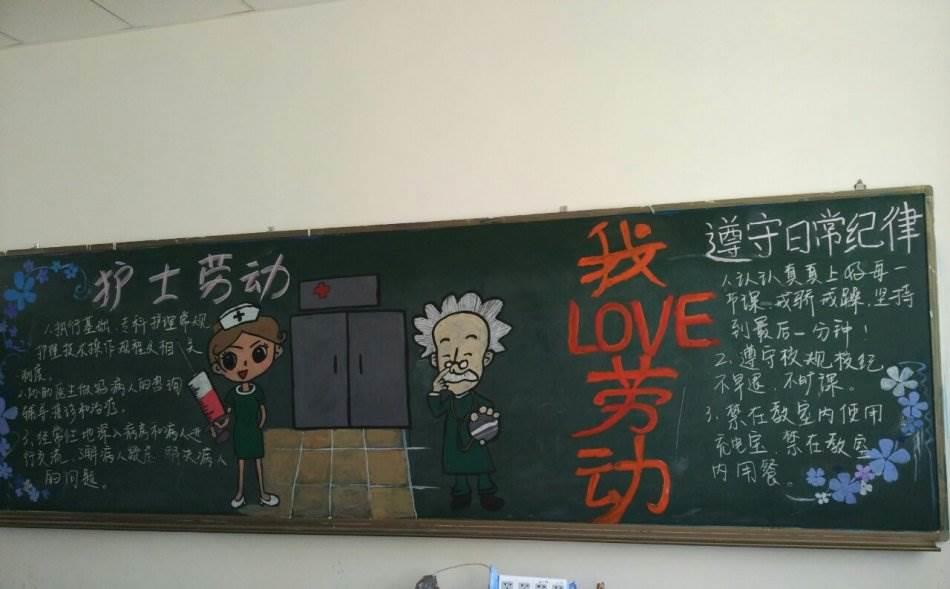 护士劳动
1.执行基础、专科护理常规
护理技术操作规程及相关
制度。
2.协助医生做好病人的咨询
辅导接诊和治疗。
3.经常性地深入病房和病人进
行交流,了解病人 解决病人
的问题。
我
LOVE
劳
动
遵守日常纪律
1.认认真真上好每一
节课,戒骄戒躁,坚持
到最后一分钟!
2.遵守校规校纪
不早退,不旷课。
3.禁在教室内使用
充电宝 禁在教室
内用餐。